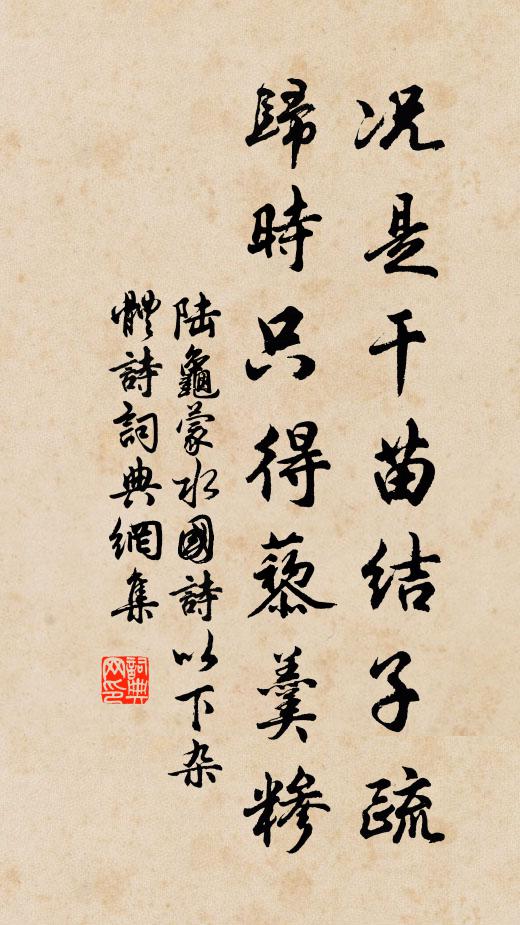 况是干苗結子疏
歸時只得藜羹糝
陸龜蒙水國詩以下杂
體詩詞典網集
詞典
网印